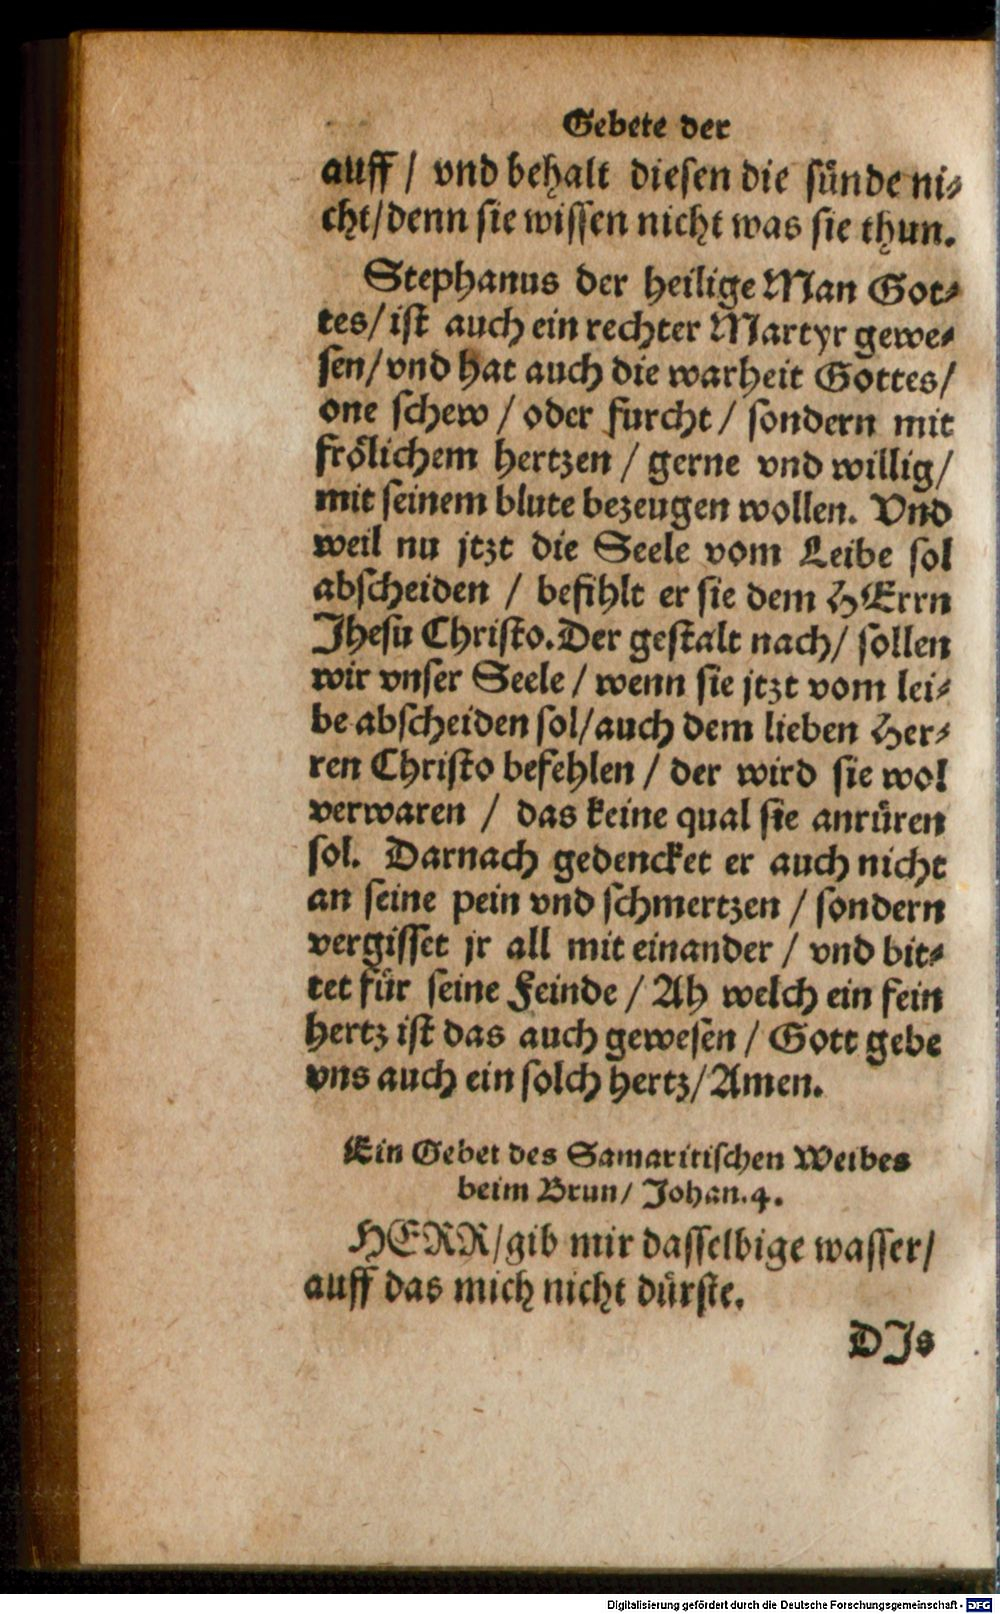 Gebete der
auff / vnd behalt diesen die sünde ni⸗
cht/denn sie wissen nicht was sie thun.
Stephanus der heilige Man Got⸗
tes/ ist auch ein rechter Martyr gewe⸗
sen/ vnd hat auch die warheit Gottes/
one schew / oder furcht / sondern mit
frölichem hertzen / gerne vnd willig/
mit seinem blute bezeugen wollen. Vnd
weil nu jtzt die Seele vom Leibe sol
abscheiden / befihlt er sie dem HErrn
Jhesu Christo. Der gestalt nach/ sollen
wir vnser Seele / wenn sie jtzt vom lei⸗
be abscheiden sol/auch dem lieben Her⸗
ren Christo befehlen / der wird sie wol
verwaren / das keine qual sie anrüren
sol. Darnach gedencket er auch nicht
an seine pein vnd schmertzen / sondern
vergisset jr all mit einander / vnd bit⸗
tet für seine Feinde / Ah welch ein fein
hertz ist das auch gewesen / Gott gebe
vns auch ein solch hertz/ Amen.
Ein Gebet des Samaritischen Weibes
beim Brun/ Johan. 4.
HERR/gib mir dasselbige wasser/
auff das mich nicht dürste.
DJs
Digitalisierung gefördert durch die Deutsche Forschungsgemeinschaft - DFG